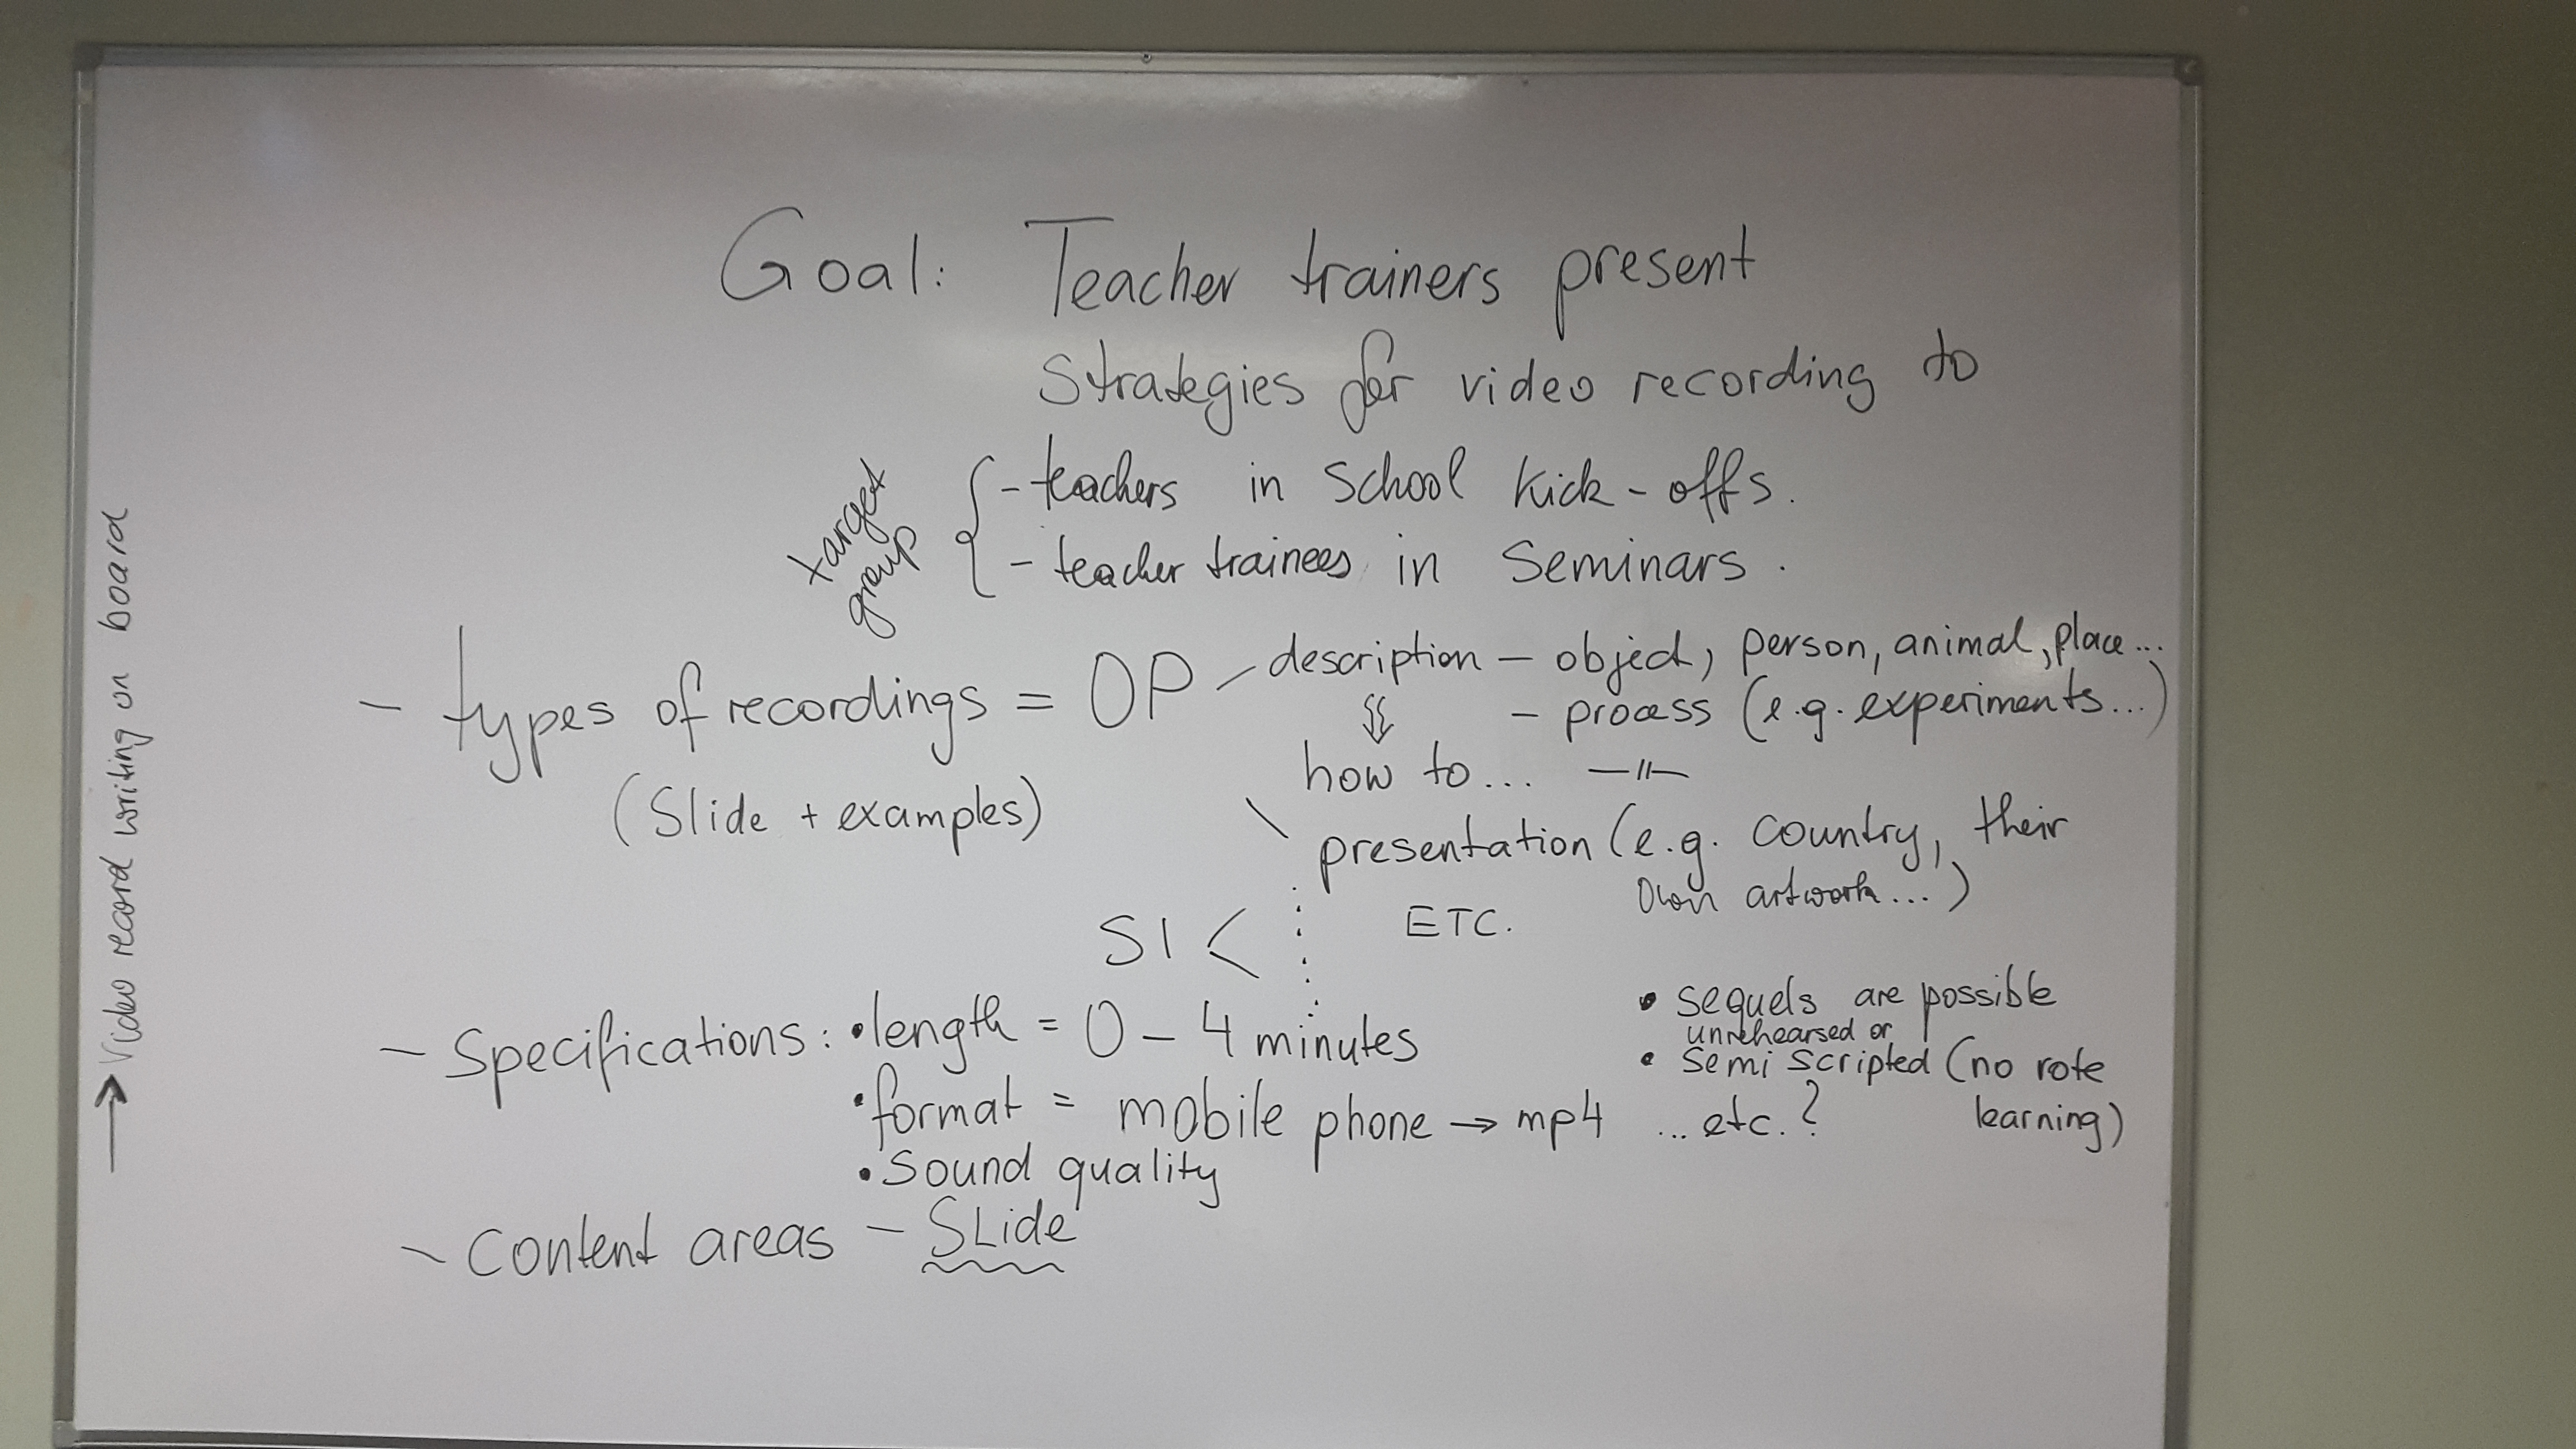 Goal: Teacher trainers present
Strategies for video recording to
target group
{ - teachers in School Kick-offs.
- teacher trainees in Seminars.
- types of recordings = OP - description - object, person, animal, place...
- process (e.g. experiments...)
(Slide + examples)
how to... —"—
presentation (e.g. country, their
own artwork...)
SI < ETC.
- Specifications: • length = 0 - 4 minutes
• format = mobile phone → mp4 ... etc.?
• Sound quality
• sequels are possible
unrehearsed or
• Semi scripted (no rote
learning)
- Content areas - SLide
→ Video record writing on board